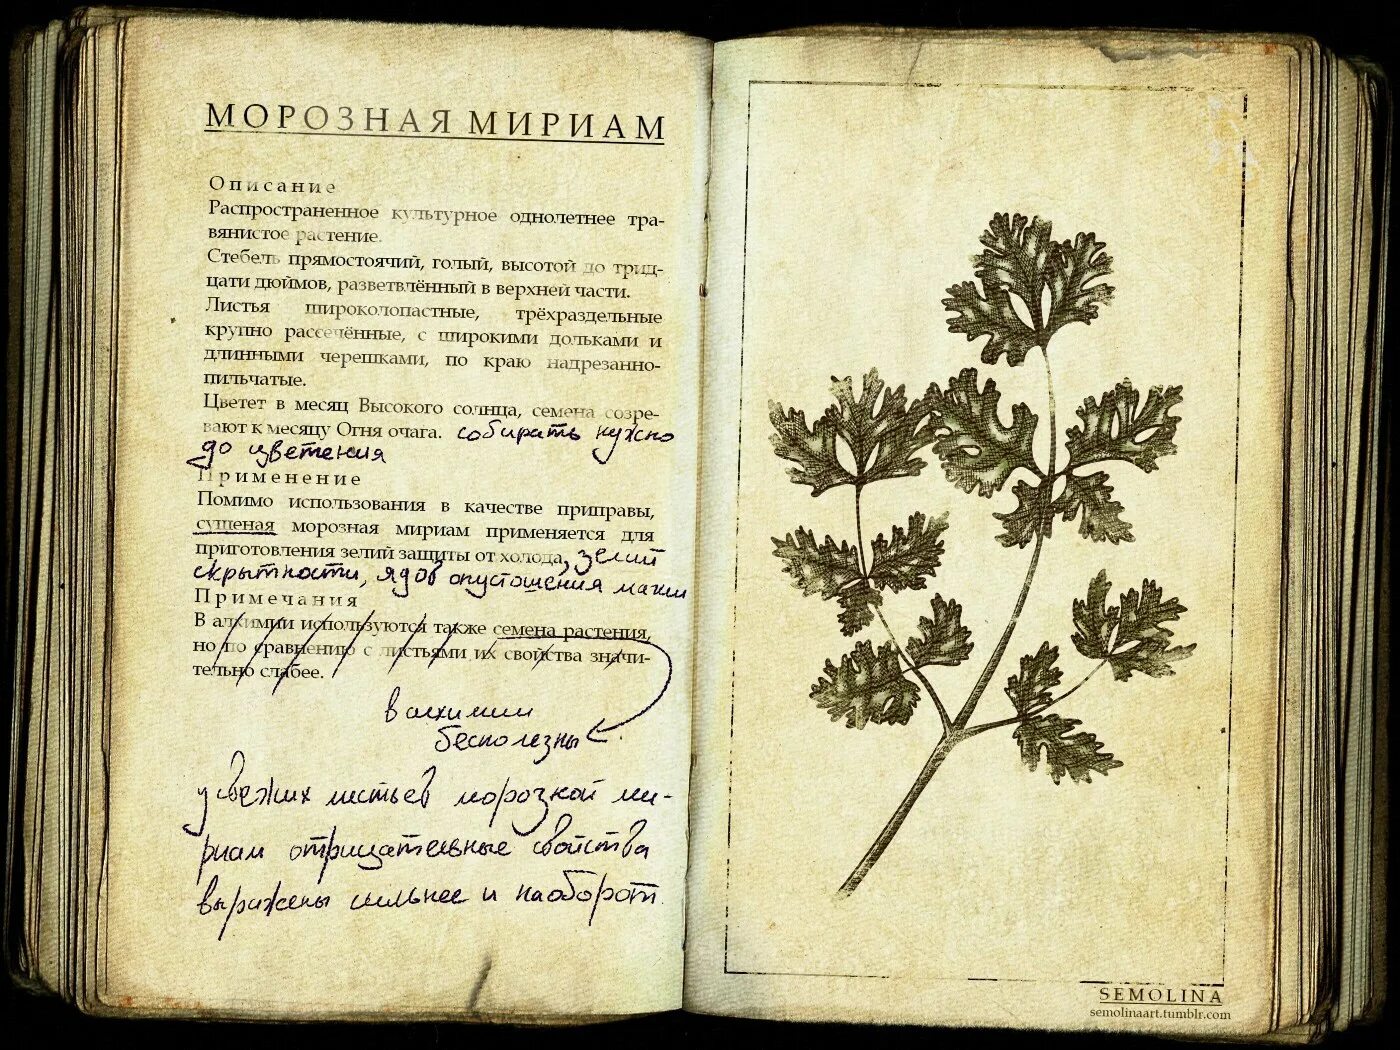 МОРОЗНАЯ МИРИАМ
Описание
Распространенное культурное однолетнее тра-
вянистое растение.
Стебель прямостоячий, голый, высотой до трид-
цати дюймов, разветвлённый в верхней части.
Листья широколопастные, трёхраздельные
крупно рассечённые, с широкими дольками и
длинными черешками, по краю надрезанно-
пильчатые.
Цветет в месяц Высокого солнца, семена созре-
вают к месяцу Огня очага. собирать нужно
до цветения
Применение
Помимо использования в качестве приправы,
сушеная морозная мириам применяется для
приготовления зелий защиты от холода, зелий
скрытности, ядов опустошения магии
Примечания
В алхимии используются также семена растения,
но по сравнению с листьями их свойства значи-
тельно слабее.
в алхимии
бесполезны
у свежих листьев морозной ми-
риам отрицательные свойства
выражены сильнее и наоборот.
SEMOLINA
semolinaart.tumblr.com